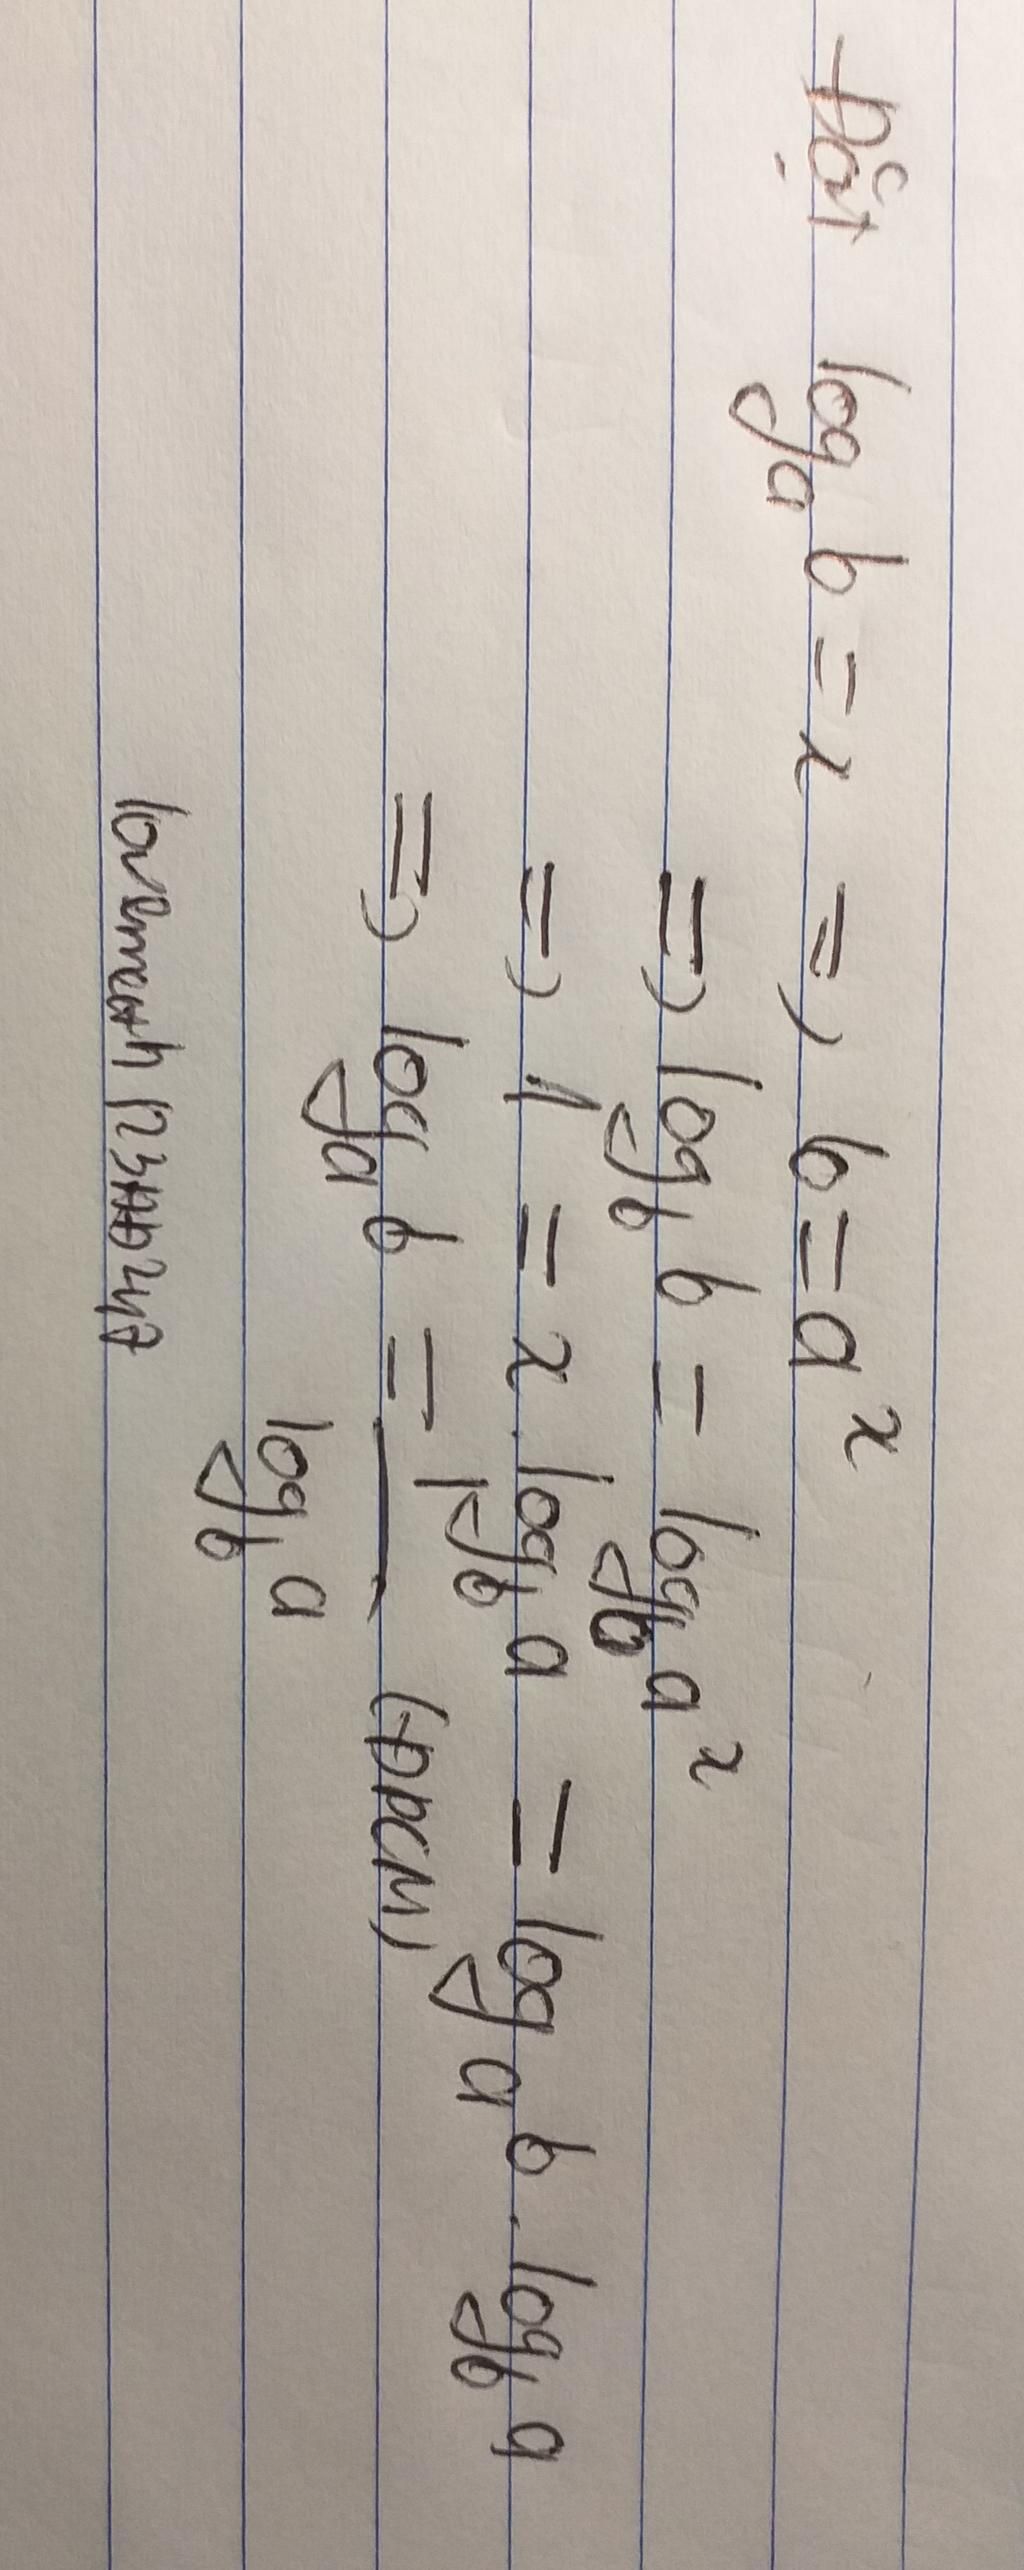 Đặt log_a b = x => b = a^x
=> log_b b = log_b a^x
=> 1 = x . log_b a = log_a b . log_b a
=> log_a b = 1 / log_b a (ĐPCM)